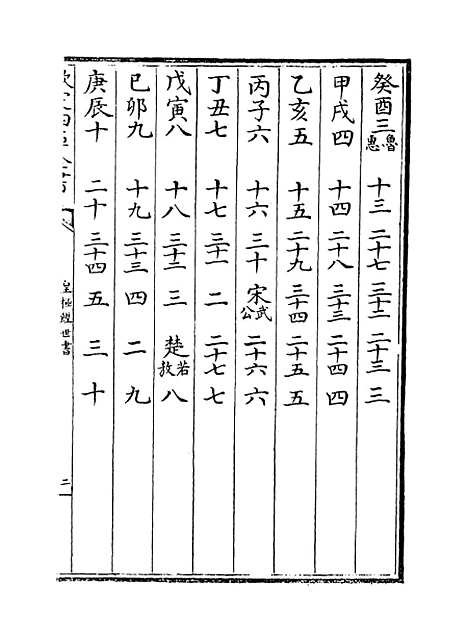 癸酉三魯惠 十三 二十七 三十二 二十三 三
甲戌四 十四 二十八 三十三 二十四 四
乙亥五 十五 二十九 三十四 二十五 五
丙子六 十六 三十 宋武公 二十六 六
丁丑七 十七 三十一 二 二十七 七
戊寅八 十八 三十二 三 楚若敖 八
已卯九 十九 三十三 四 二 九
庚辰十 二十 三十四 五 三 十
皇極經世書
二